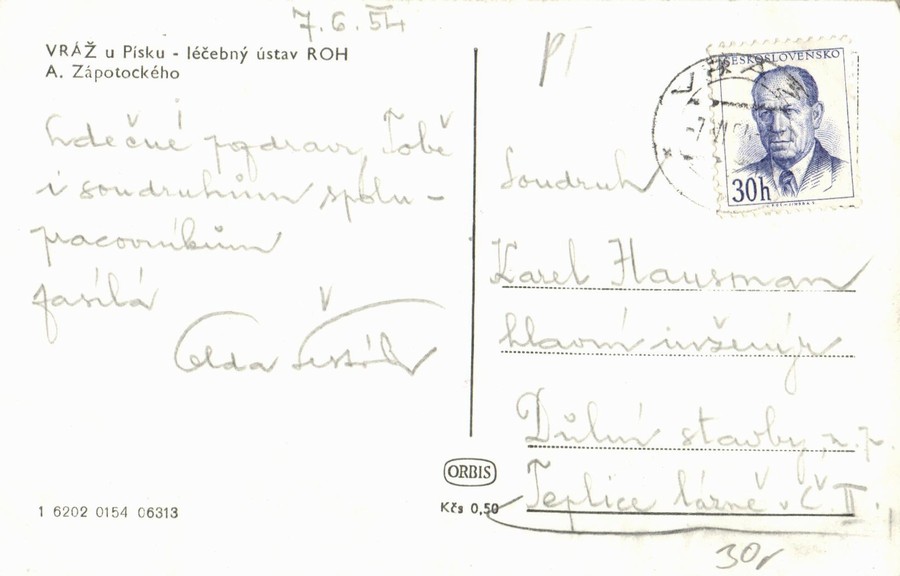 7.6.54
VRÁŽ u Písku - léčebný ústav ROH
A. Zápotockého
Srdečné pozdravy Tobě
i soudruhům spolu -
pracovníkům
zasílá
Olda
ORBIS
Kčs 0,50
1 6202 0154 06313
PT
ČESKOSLOVENSKO
30h
Soudruh
Karel Hausman
hlavní inženýr
Důlní stavby, n.p.
Teplice lázně v Č II.
30,